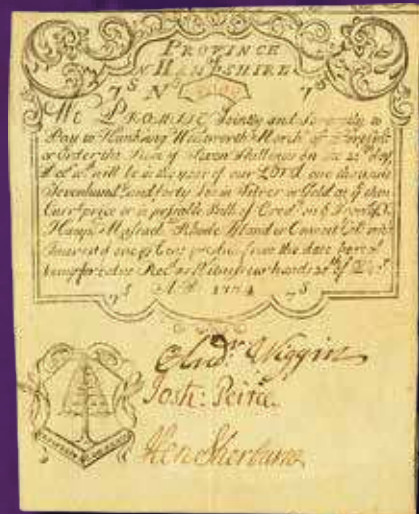 PROVINCE
of
N HAMPSHIRE
7S No 7S
We PROMISE Jointly and Severally to
Pay to Hunking Wentworth Merch.t of Portsm.o
or Order the Sum of Seven Shillings on the 25th day
of will be in the year of our LORD one thousand
Sevenhund.d and forty in Silver or Gold at ye then
Curr.t price or in passable Bills of Cred.t on ye Provs of N
Hamp.r Massach Rhode Island or Connect.t with
Interest one per Cent from the date hereof
being for value Rec.d as Witness our hands 25th of Dec.r
7S A D 1734 7S
And.r Wiggin
Josh: Peirce.
Hen Sherburne